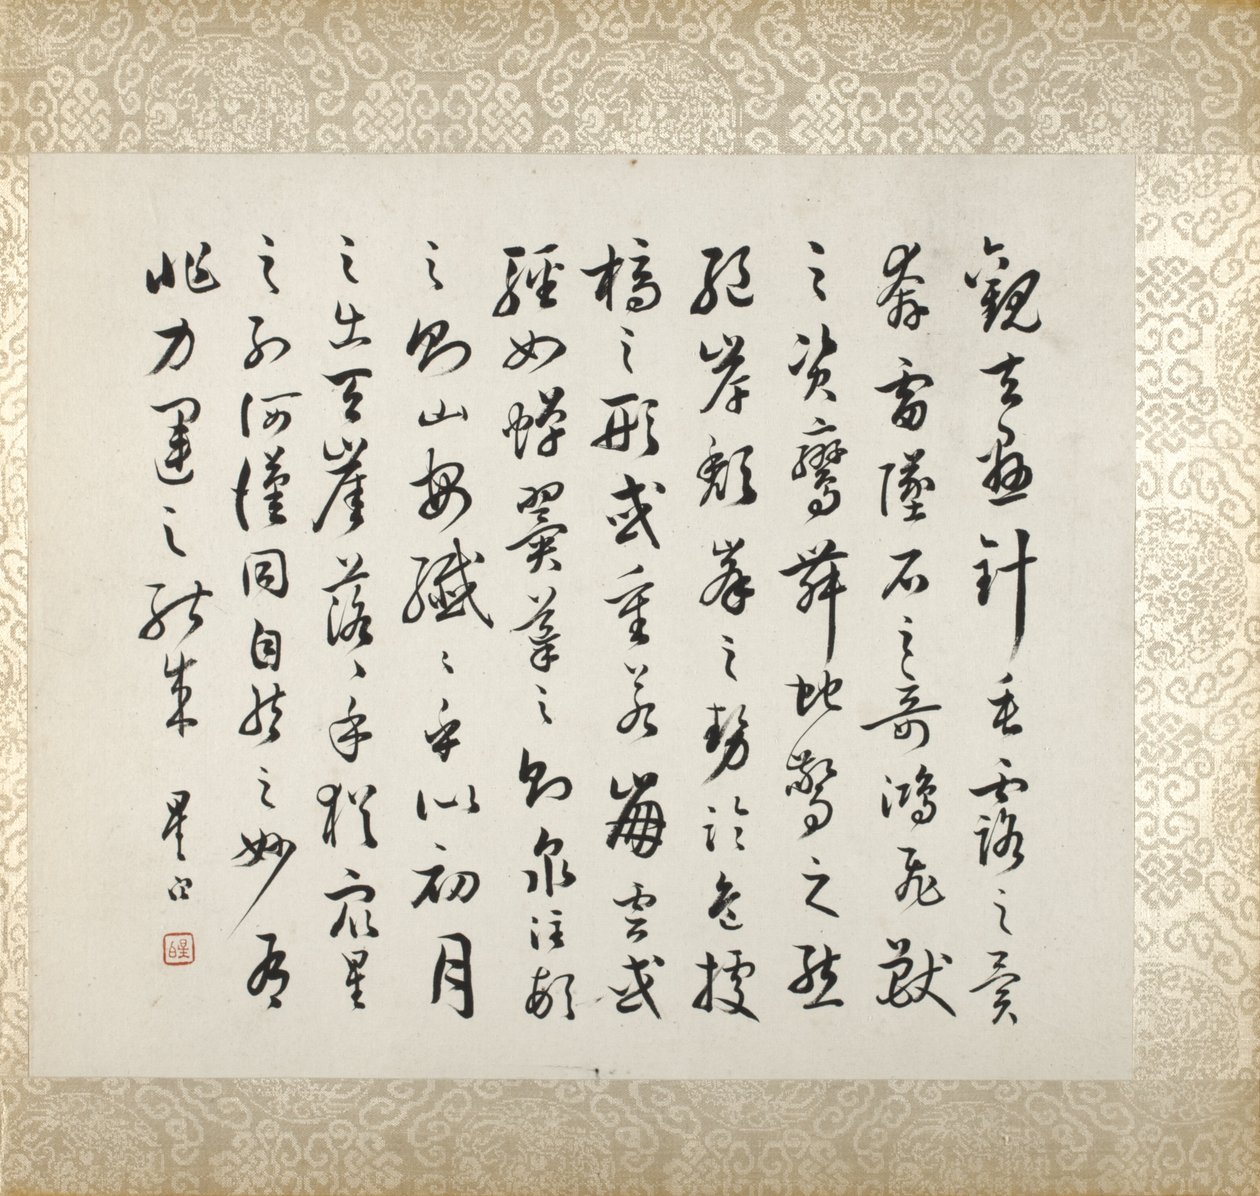 觀夫懸針垂露之異
奔雷墜石之奇鴻飛獸
之資鸞舞蛇驚之態
絕岸頹峯之勢臨危據
槁之形或重若崩雲或
輕如蟬翼導之則泉注頓
之則山安纖〻乎似初月
之出天崖落〻乎猶眾星
之列河漢同自然之妙有
非力運之能成 星白